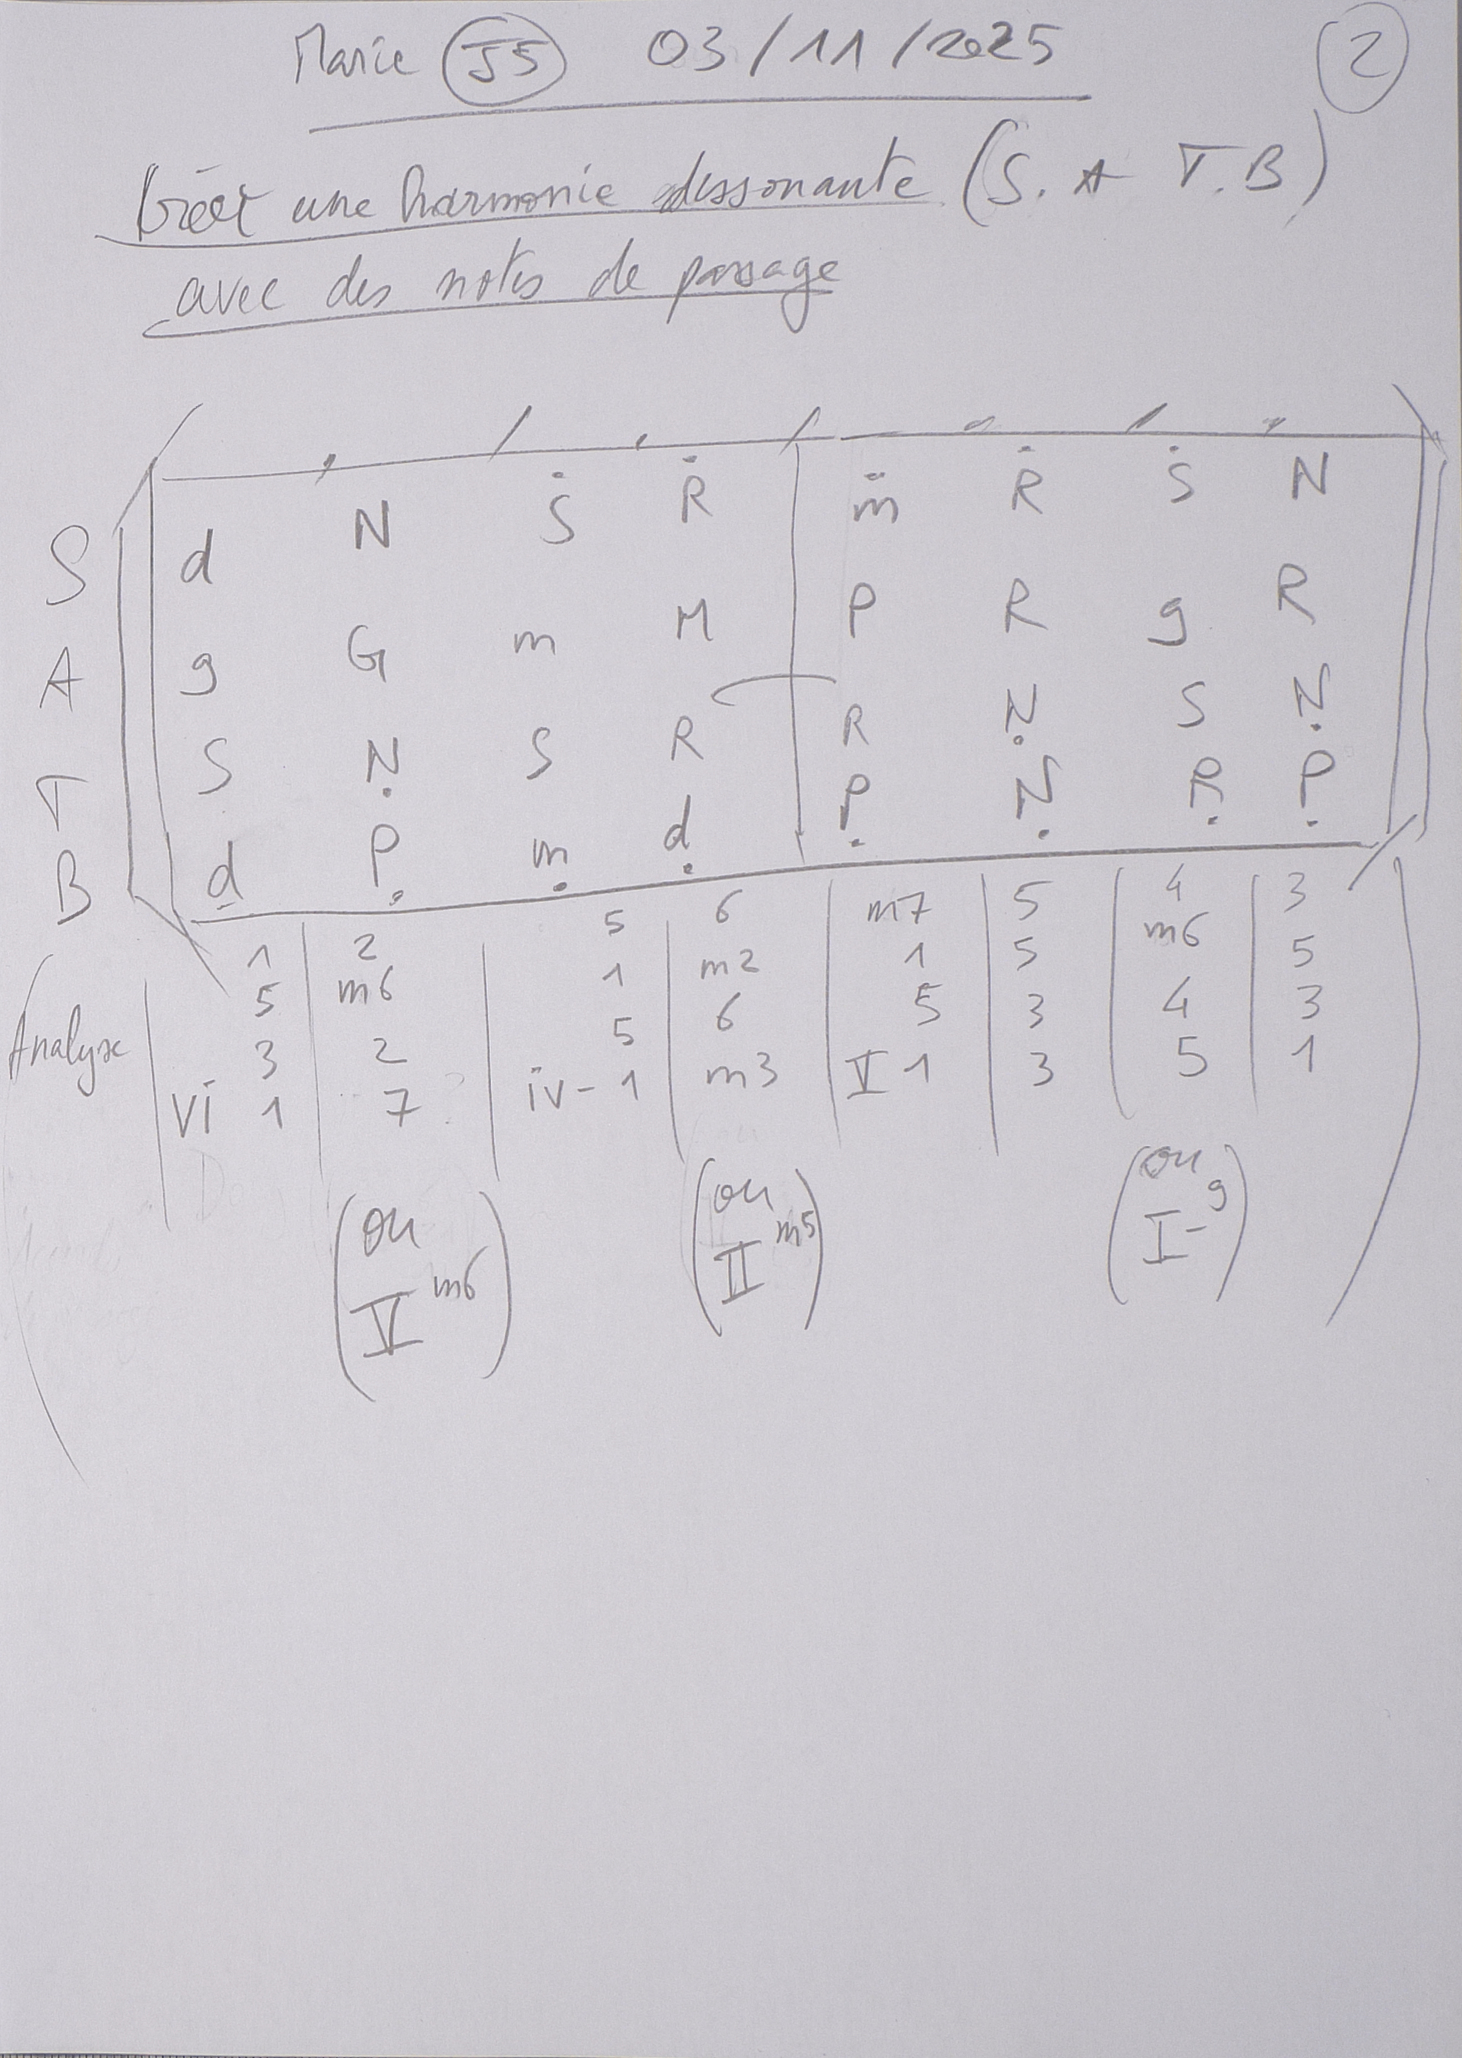 Marie J5 03/11/2025 2
Créer une harmonie dissonante (S. A T. B)
avec des notes de passage
S d N Ṡ Ṙ m̈ Ṙ Ṡ N
A g G m M P R g R
T S Ṇ S R R Ṇ S Ṇ
B d P̣ ṃ ḍ P̣ Ṇ Ṛ P̣
1 2 5 6 m7 5 4 3
5 m6 1 m2 1 5 m6 5
Analyse 3 2 5 6 5 3 4 3
vi 1 7 iv- 1 m3 V 1 3 5 1
(ou V m6) (ou II m5) (ou I- 9)